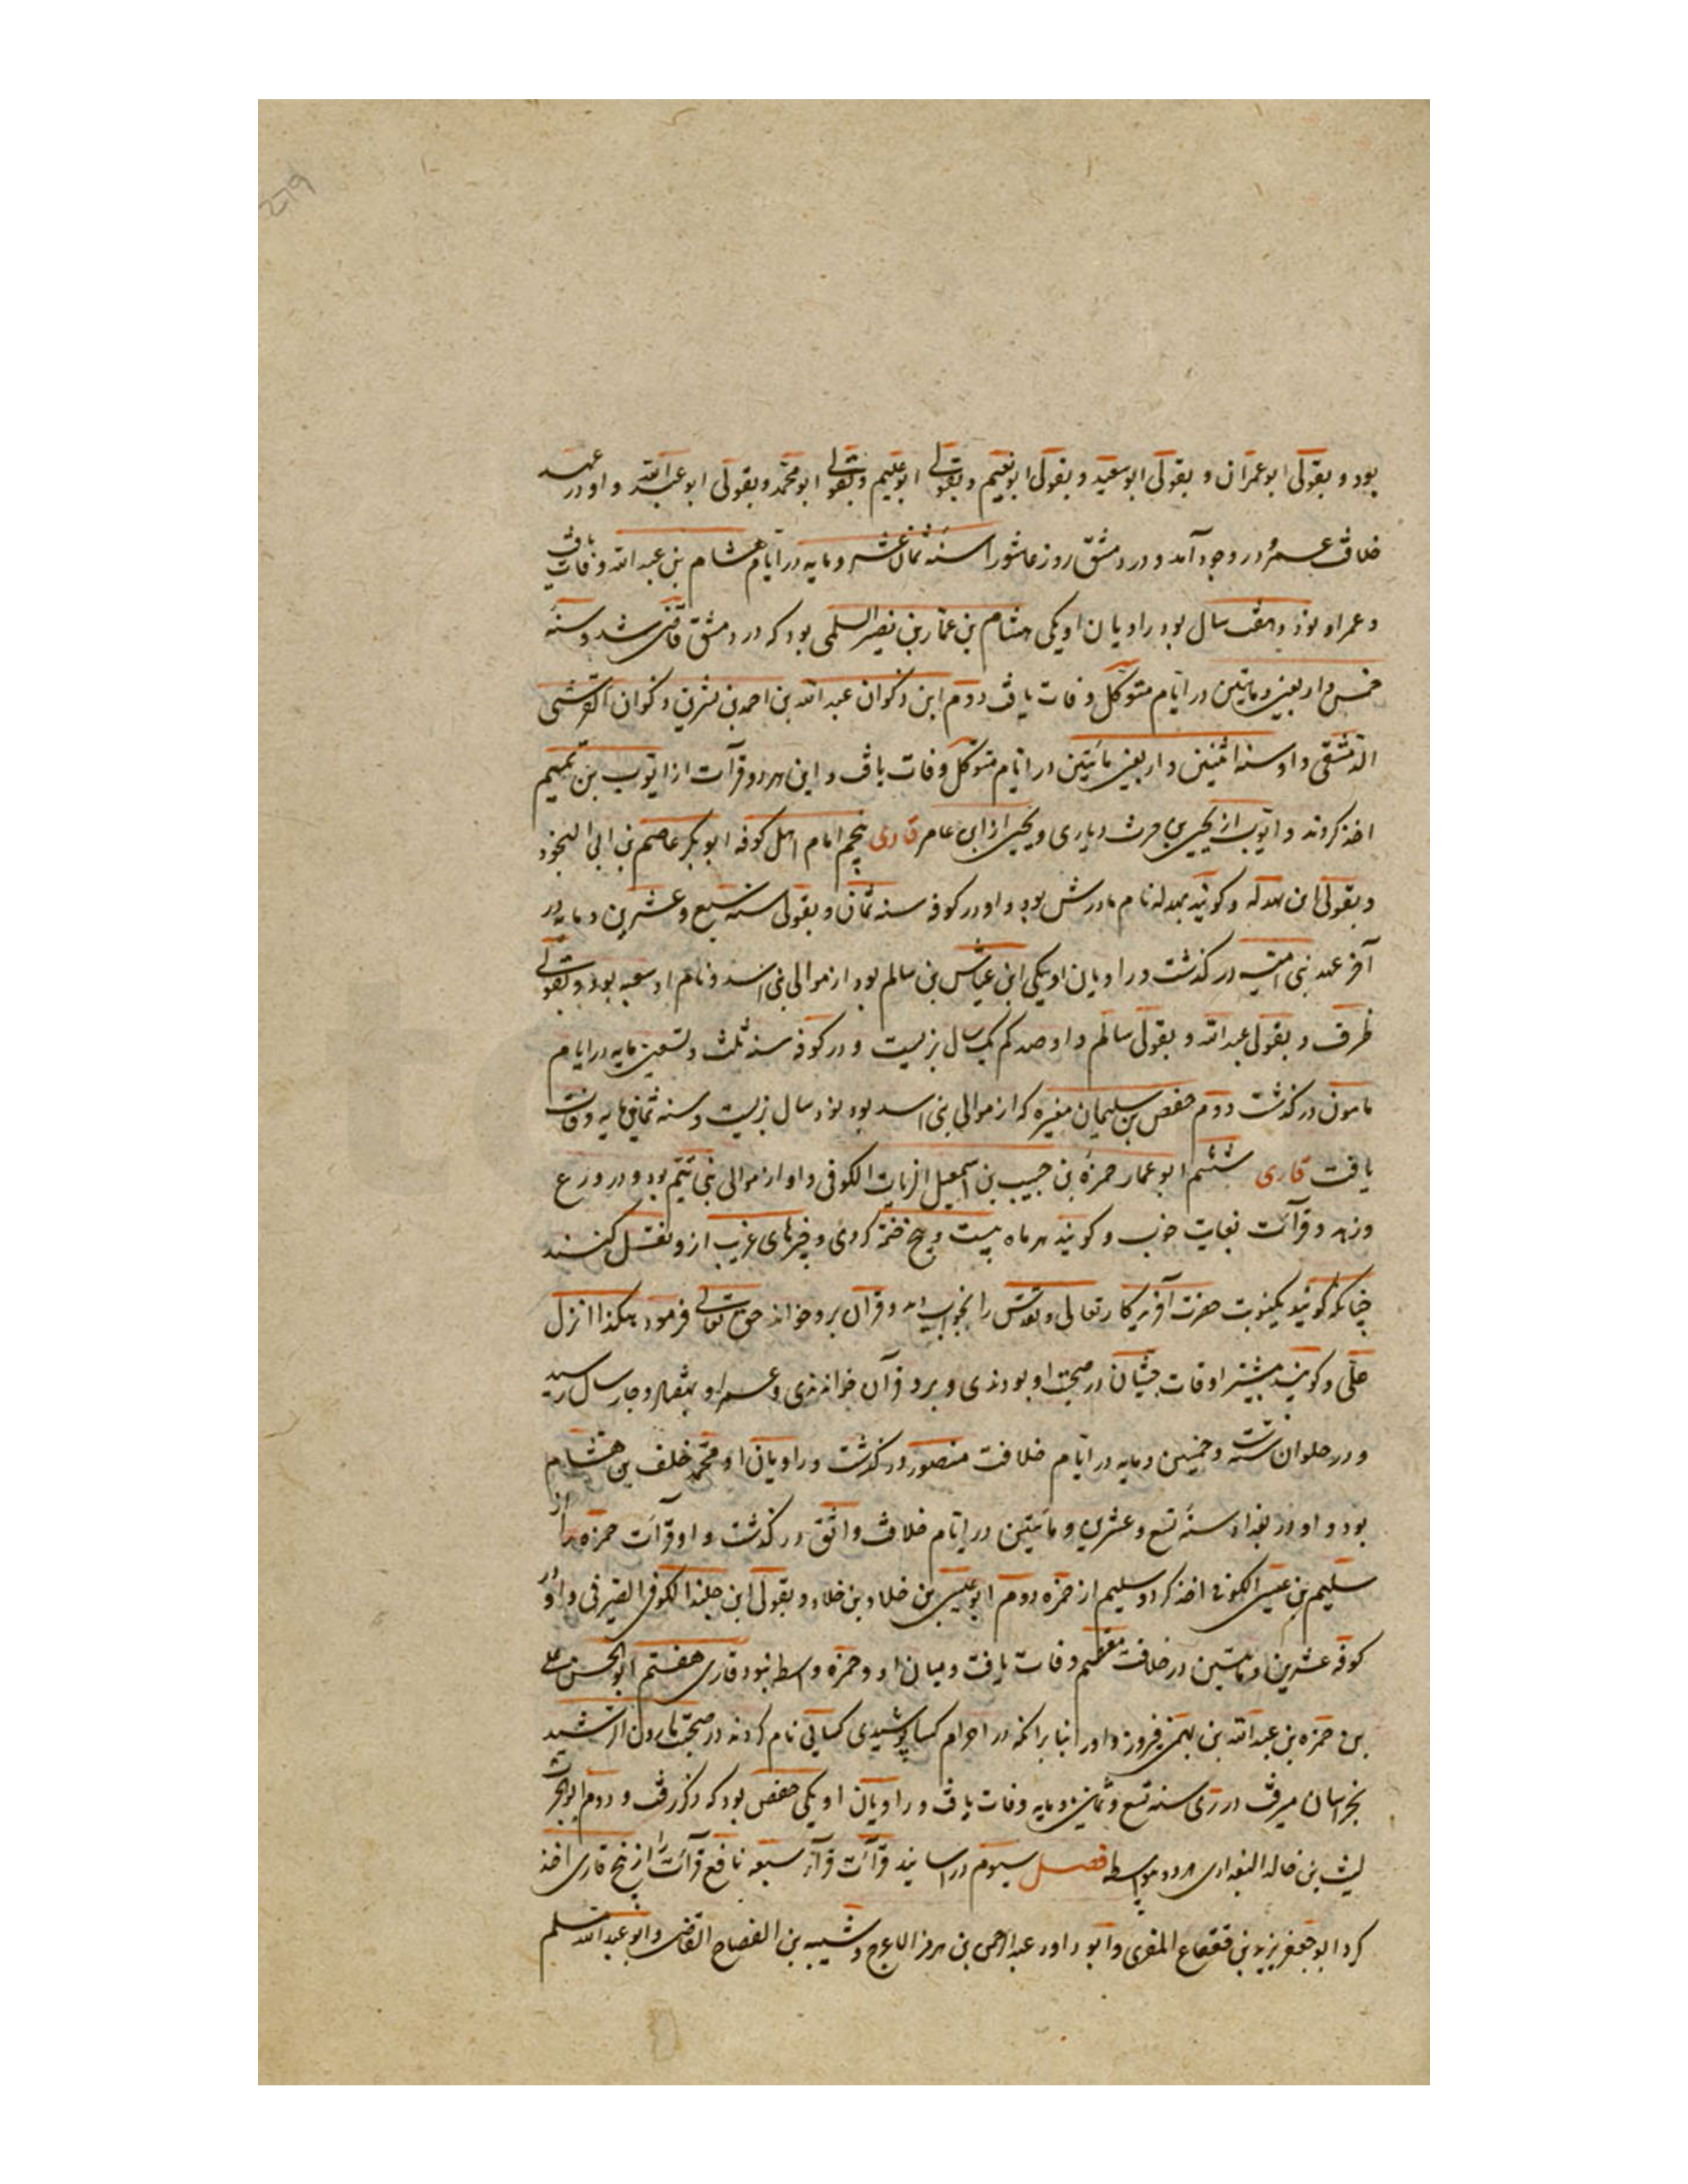 بود و بقولی ابو عمران و بقولی ابو سعید و بقولی ابو نعیم و بقولی ابو علیم و بقولی ابو محمد و بقولی ابو عبدالله و او در عهد
خلافت عمر در وجود آمد و در دمشق روز عاشورا سنه ثمان عشر و مایه در ایام هشام بن عبدالله وفات یافت
و عمر او نود و هفت سال بود راویان او یکی هشام بن عمار بن نصیر السلمی بود که در دمشق قاضی شد و سنه
خمس و اربعین و مایتین در ایام متوکل وفات یافت دوم ابن ذکوان عبدالله بن احمد بن بشر بن ذکوان القرشی
الدمشقی و او سنه اثنین و اربعین مأیتین در ایام متوکل وفات یافت و این هر دو قرآت از ایوب بن تمیم
اخذ کردند و ایوب از یحیی بن حرث دیاری و یحیی از ابن عامر قاری پنجم امام اهل کوفه ابو بکر عاصم بن ابی النجود
و بقولی ابن بهدله و کویند بهدله نام مادرش بود و او در کوفه سنه ثمان و بقولی سنه سبع و عشرین و مایه در
آخر عهد بنی امیه در کذشت و راویان او یکی ابن عیاش بن سالم بود از موالی بنی اسد و نام او شعبه بود و بقولی
ظرف و بقول عبدالله و بقولی سالم و او صد کم یک سال بزیست و در کوفه سنه ثلث و تسعین مایه در ایام
مامون در کذشت دوم حفص بن سلیمان مغیره که از موالی بنی اسد بود نود سال بزیست و سنه ثمانین مایه وفات
یافت قاری ششم ابو عمار حمزه بن حبیب بن اسمعیل الزیات الکوفی و او از موالی بنی تیم بود و در ورع
و زهد و قرآت بغایت خوب و کویند هر ماه بیست و پنج ختمه کردی و خبرهای غریب از و نقل کنند
چنانکه کویند یکنوبت حضرت آفریدکار تعالی و تقدس را بخواب دید و قرآن برو خواند حق تعالی فرمود هکذا انزل
علی و کویند بیشتر اوقات جنیان در صحبت او بودندی و برو قرآن خواندندی و عمر او بهفتاد و چهار سال رسید
و در حلوان سنه ست و خمسین و مایه در ایام خلافت منصور در کذشت و راویان او محمد خلف بن هشام
بود و او در بغداد سنه تسع و عشرین و مأیتین در ایام خلافت واثق در کذشت و او قرآت حمزه را از
سلیم بن عیسی الکوفی اخذ کرد و سلیم از حمزه دوم ابو عیسی بن خلاد بن خلاد و بقولی ابن خلید الکوفی الصیرفی و او در
کوفه عشرین و مایتین در خلافت معتصم وفات یافت و میان او و حمزه واسطه نبود قاری هفتم ابو الحسن علی
بن حمزه بن عبدالله بن بهمن فیروز و او را بنا بر آنکه در احرام کسا پوشیدی کسایی نام کردند در صحبت هارون الرشید
بخراسان میرفت در ری سنه تسع و ثمانین و مایه وفات یافت و راویان او یکی حفص بود که ذکر رفت و دوم ابو الحرث
لیث بن خالد البغدادی هر دو بواسطه فصل سیوم در اسانید قرآت قرآء سبعه نافع قرآت را از پنج قاری اخذ
کرد ابو جعفر یزید بن قعقاع المقری و ابو داود عبدالرحمن بن هرمز الاعرج و شیبه بن النصاح القاضی و ابو عبدالله مسلم